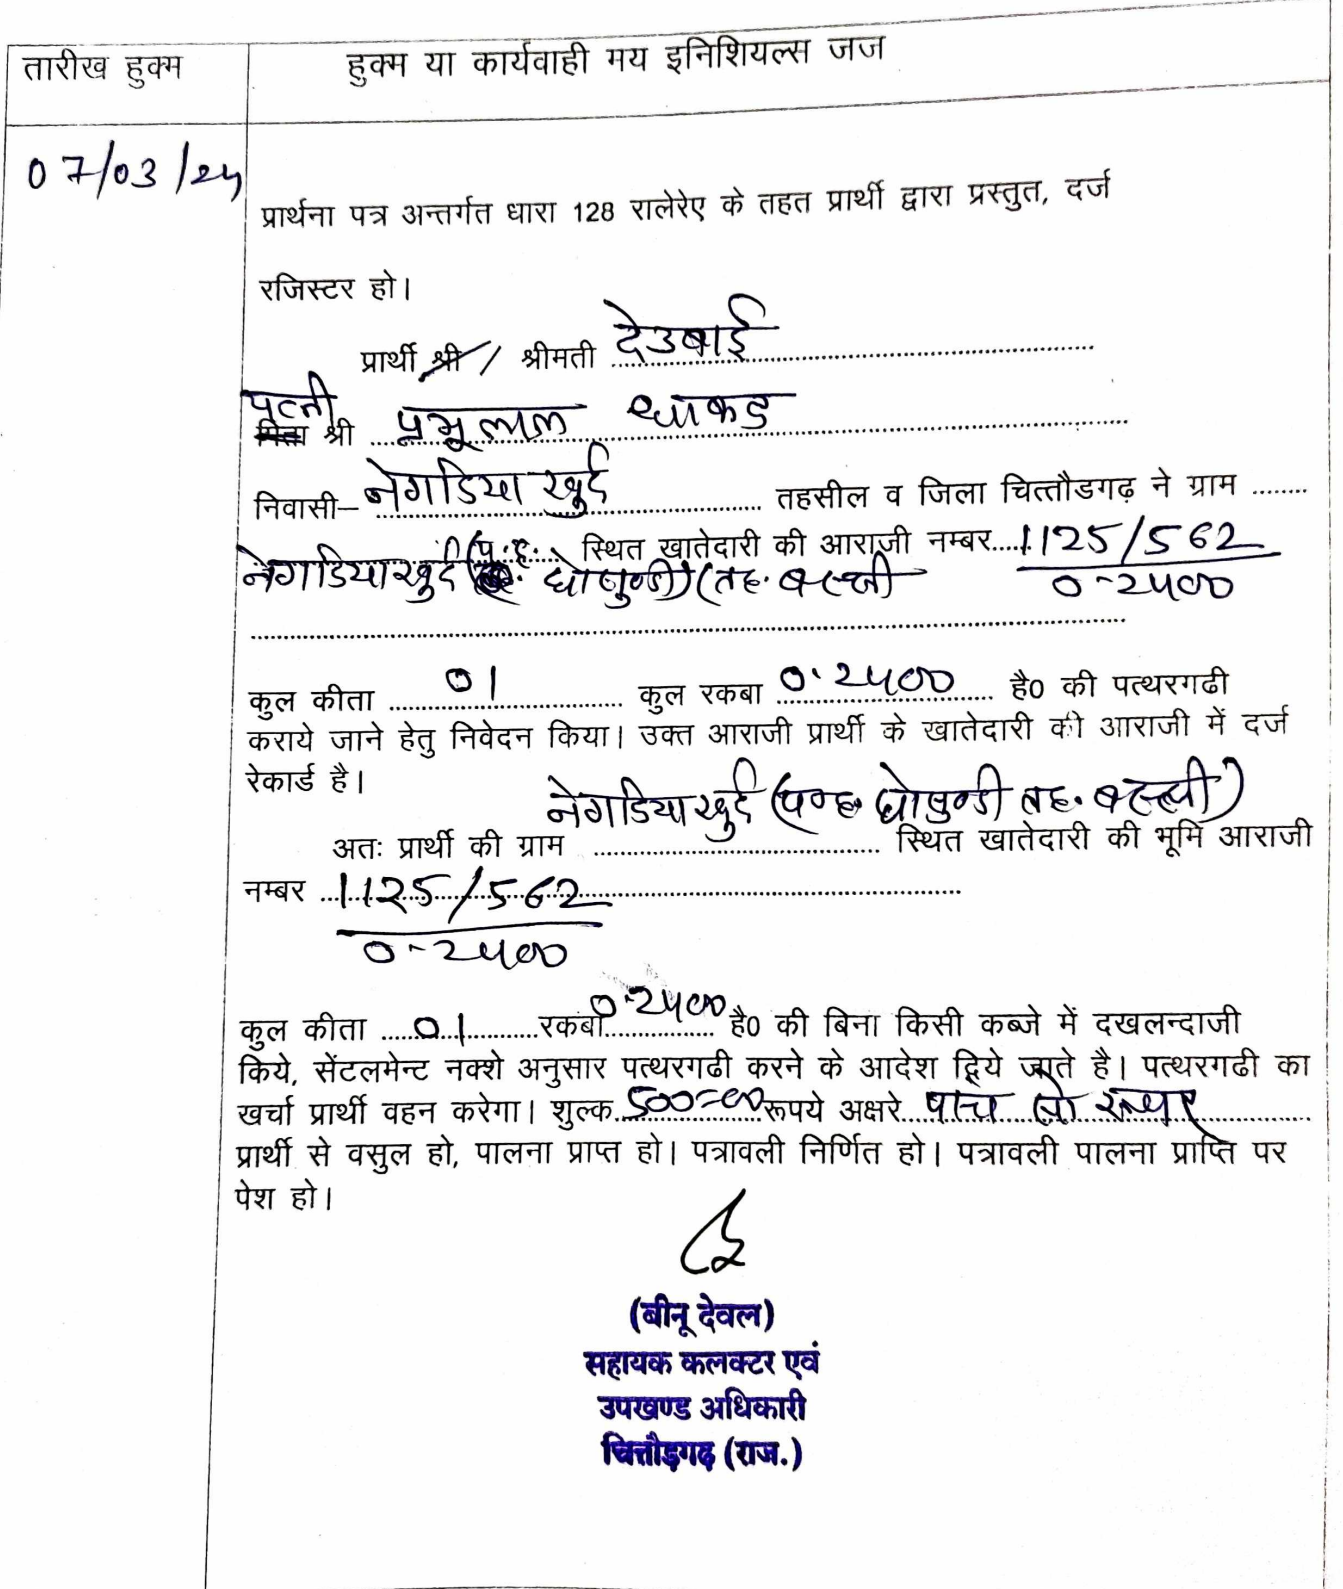 तारीख हुक्म
हुक्म या कार्यवाही मय इनिशियल्स जज
07/03/24
प्रार्थना पत्र अन्तर्गत धारा 128 रालेरेए के तहत प्रार्थी द्वारा प्रस्तुत, दर्ज
रजिस्टर हो।
प्रार्थी श्री / श्रीमती देउबाई
पत्नी
पिता श्री प्रभूलाल धाकड
निवासी– नेगडिया खुर्द तहसील व जिला चित्तौडगढ़ ने ग्राम ........
नेगडिया खुर्द (प.ह. घोसुण्डी) (तह. बस्सी स्थित खातेदारी की आराजी नम्बर 1125/562
0-2400
कुल कीता 01 कुल रकबा 0.2400 है0 की पत्थरगढी
कराये जाने हेतु निवेदन किया। उक्त आराजी प्रार्थी के खातेदारी की आराजी में दर्ज
रेकार्ड है।
नेगडिया खुर्द (प०ह० घोसुण्डी तह. बस्सी)
अतः प्रार्थी की ग्राम .................... स्थित खातेदारी की भूमि आराजी
नम्बर 1125/562
0-2400
कुल कीता 01 रकबा 0.2400 है0 की बिना किसी कब्जे में दखलन्दाजी
किये, सेंटलमेन्ट नक्शे अनुसार पत्थरगढी करने के आदेश दिये जाते है। पत्थरगढी का
खर्चा प्रार्थी वहन करेगा। शुल्क 500=00 रूपये अक्षरे पांच सो रूपए
प्रार्थी से वसुल हो, पालना प्राप्त हो। पत्रावली निर्णित हो। पत्रावली पालना प्राप्ति पर
पेश हो।
(बीनू देवल)
सहायक कलक्टर एवं
उपखण्ड अधिकारी
चित्तौड़गढ़ (राज.)